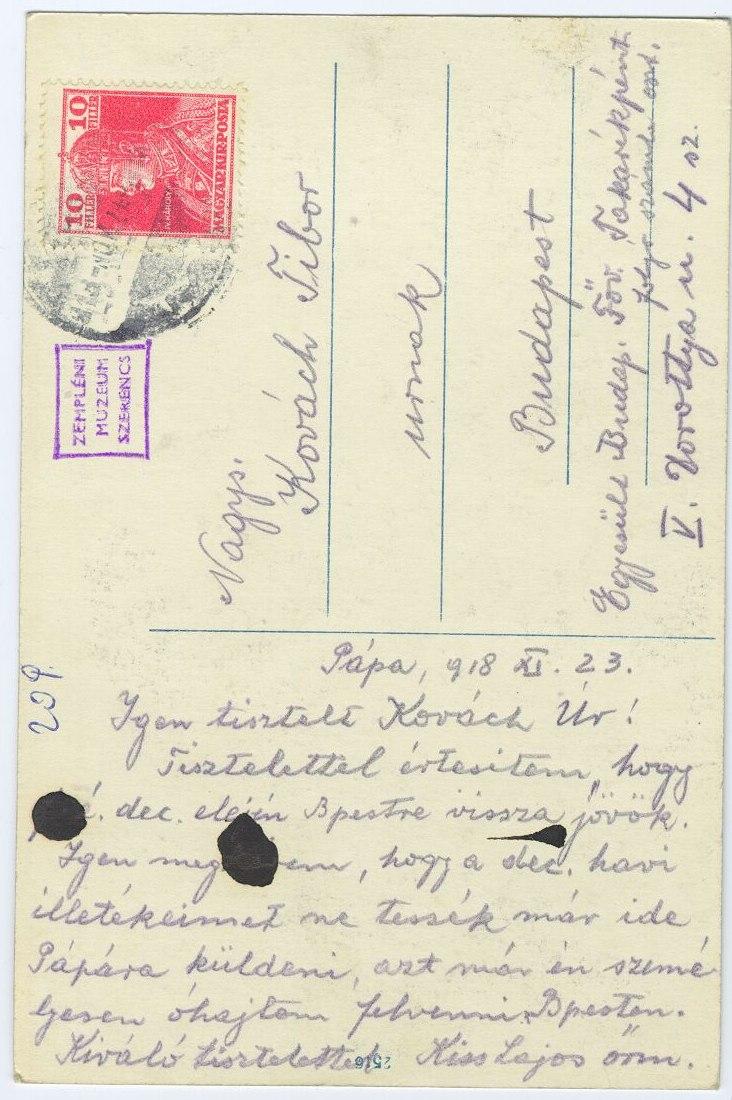 10 FILLER 10 FILLER
MAGYAR KIR. POSTA
ZEMPLÉNI
MUZEUM
SZERENCS
Nagys.
Kovách Tibor
urnak
Budapest
Egyesült Budap. Főv. Takarékpént
folyó számla oszt.
V. Dorottya u. 4 sz.
209.
Pápa, 918 XI. 23.
Igen tisztelt Kovách Úr!
Tisztelettel értesitem, hogy
dec. elején Bpestre vissza jövök.
Igen hogy a dec. havi
illetékeimet ne tessék már ide
Pápára küldeni, azt már én szemé
lyesen óhajtom felvenni Bpesten.
Kiváló tisztelettel Kiss Lajos őrm.
2516